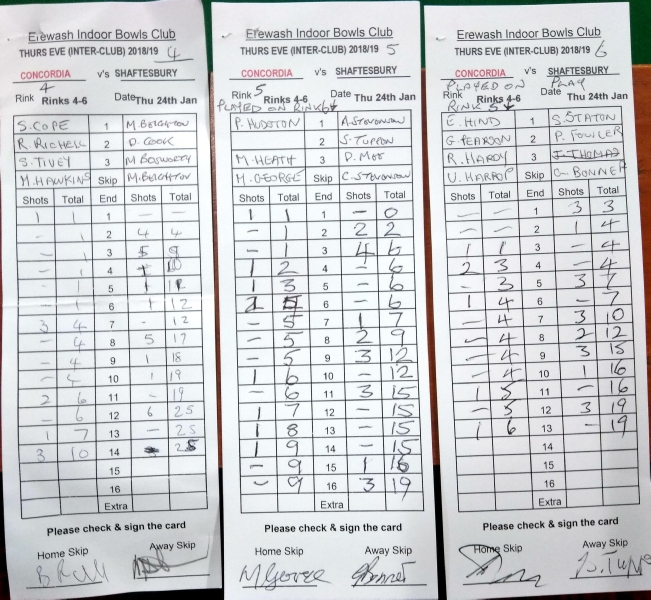 Erewash Indoor Bowls Club
THURS EVE (INTER-CLUB) 2018/19 4
CONCORDIA v's SHAFTESBURY
4
Rink Rinks 4-6 Date Thu 24th Jan
S. COPE 1 M. BEIGHTON
R. RICHELL 2 D. COOK
S. TIVEY 3 M BOSWORTH
M. HAWKINS Skip M. BEIGHTON
Shots Total End Shots Total
1 1 1 — —
- 1 2 4 4
- 1 3 5 9
- 1 4 1 10
- 1 5 1 11
- 1 6 1 12
3 4 7 - 12
- 4 8 5 17
- 4 9 1 18
- 4 10 1 19
2 6 11 - 19
- 6 12 6 25
1 7 13 - 25
3 10 14 25
15
16
Extra
Please check & sign the card
Home Skip Away Skip
Erewash Indoor Bowls Club
THURS EVE (INTER-CLUB) 2018/19 5
CONCORDIA v's SHAFTESBURY
5
Rink Rinks 4-6 Date Thu 24th Jan
PLAYED ON RINK 6
P. HUDSTON 1 A. STEVONSON
2 S. TUPPON
M. HEATH 3 D. MOT
M. GEORGE Skip C. STEVONSON
Shots Total End Shots Total
1 1 1 — 0
- 1 2 2 2
- 1 3 4 6
1 2 4 - 6
1 3 5 - 6
2 5 6 - 6
- 5 7 1 7
- 5 8 2 9
- 5 9 3 12
1 6 10 - 12
- 6 11 3 15
1 7 12 - 15
1 8 13 - 15
1 9 14 - 15
- 9 15 1 16
- 9 16 3 19
Extra
Please check & sign the card
Home Skip Away Skip
M George
Erewash Indoor Bowls Club
THURS EVE (INTER-CLUB) 2018/19 6
CONCORDIA v's SHAFTESBURY
PLAYED ON PLAY
Rink Rinks 4-6 Date Thu 24th Jan
RINK 5
E. HIND 1 S. STATON
G. PEARSON 2 P. FOWLER
R. HARDY 3 J. THOMAS
V. HARROP Skip G. BONNER
Shots Total End Shots Total
— — 1 3 3
— — 2 1 4
1 1 3 - 4
2 3 4 - 4
- 3 5 3 7
1 4 6 - 7
- 4 7 3 10
- 4 8 2 12
- 4 9 3 15
- 4 10 1 16
1 5 11 - 16
- 5 12 3 19
1 6 13 - 19
14
15
16
Extra
Please check & sign the card
Home Skip Away Skip